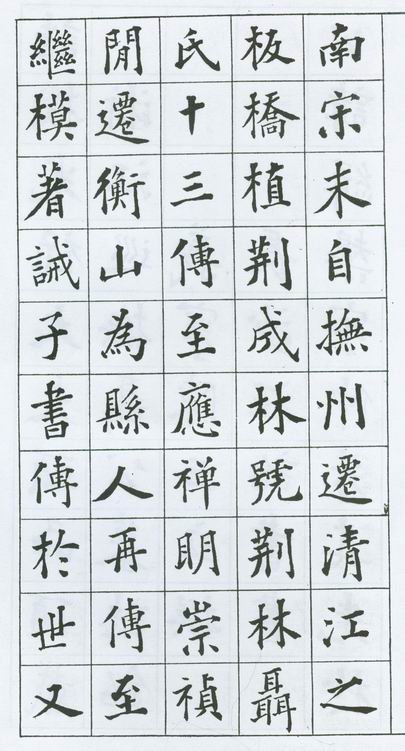 南宋末自撫州遷清江之
板橋植荆成林號荆林聶
氏十三傳至應禅明崇禎
閒遷衡山為縣人再傳至
繼模著誡子書傳於世又